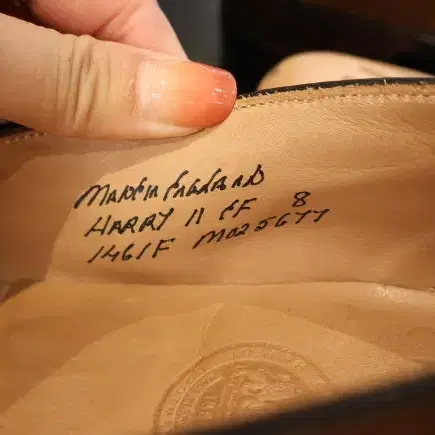 MADE IN ENGLAND
HARRY 11 EF 8
1461F M025677